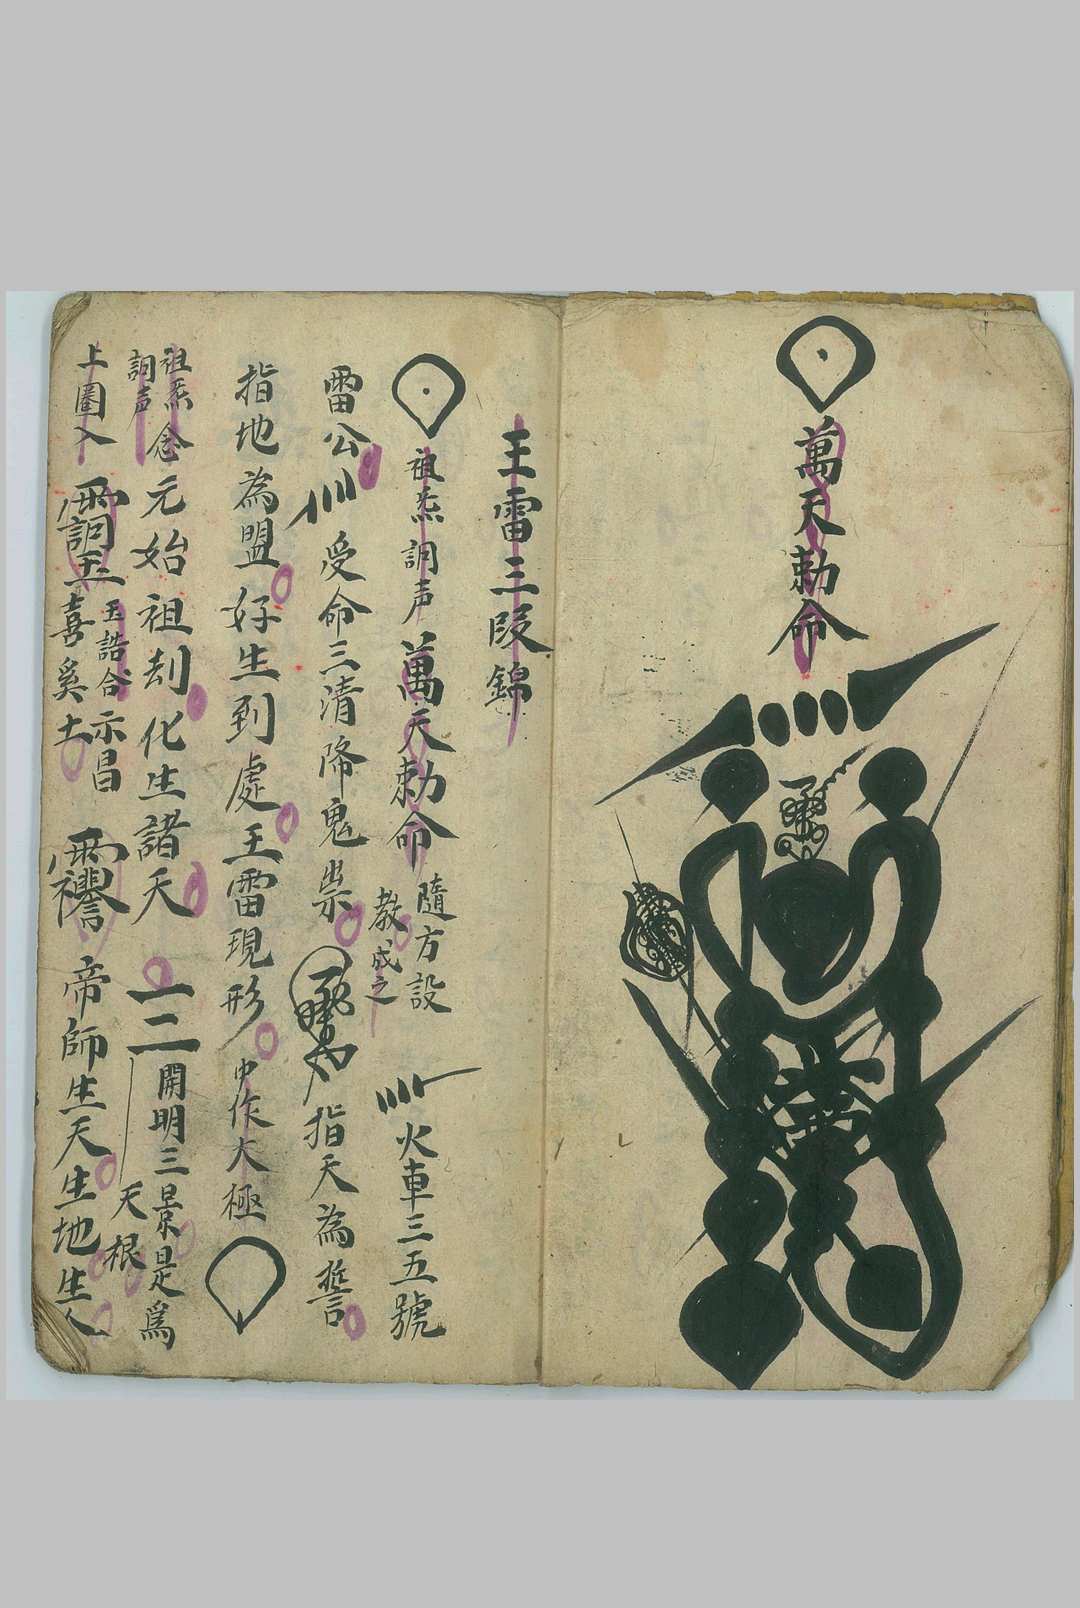 萬天勅命
王雷三段錦
祖炁 詞声 萬天勅命 隨方設教 成之 火車三五號
雷公 受命三清降鬼祟 指天為誓
指地為盟 好生到處 王雷現形 中作大極
祖炁念 詞声 元始祖刦化生諸天 一二 開明三景是爲天根
上圈入 玉誥合 示昌 喜奚土 帝師生天生地生人